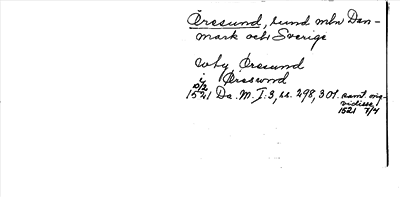 Öresund, sund mln Dan-
mark och Sverige
why Øresund
i Øresswnd
10/2
1541 Da. M. I:3, ss. 298, 301. samt orig.
vidisse
1521 7/4